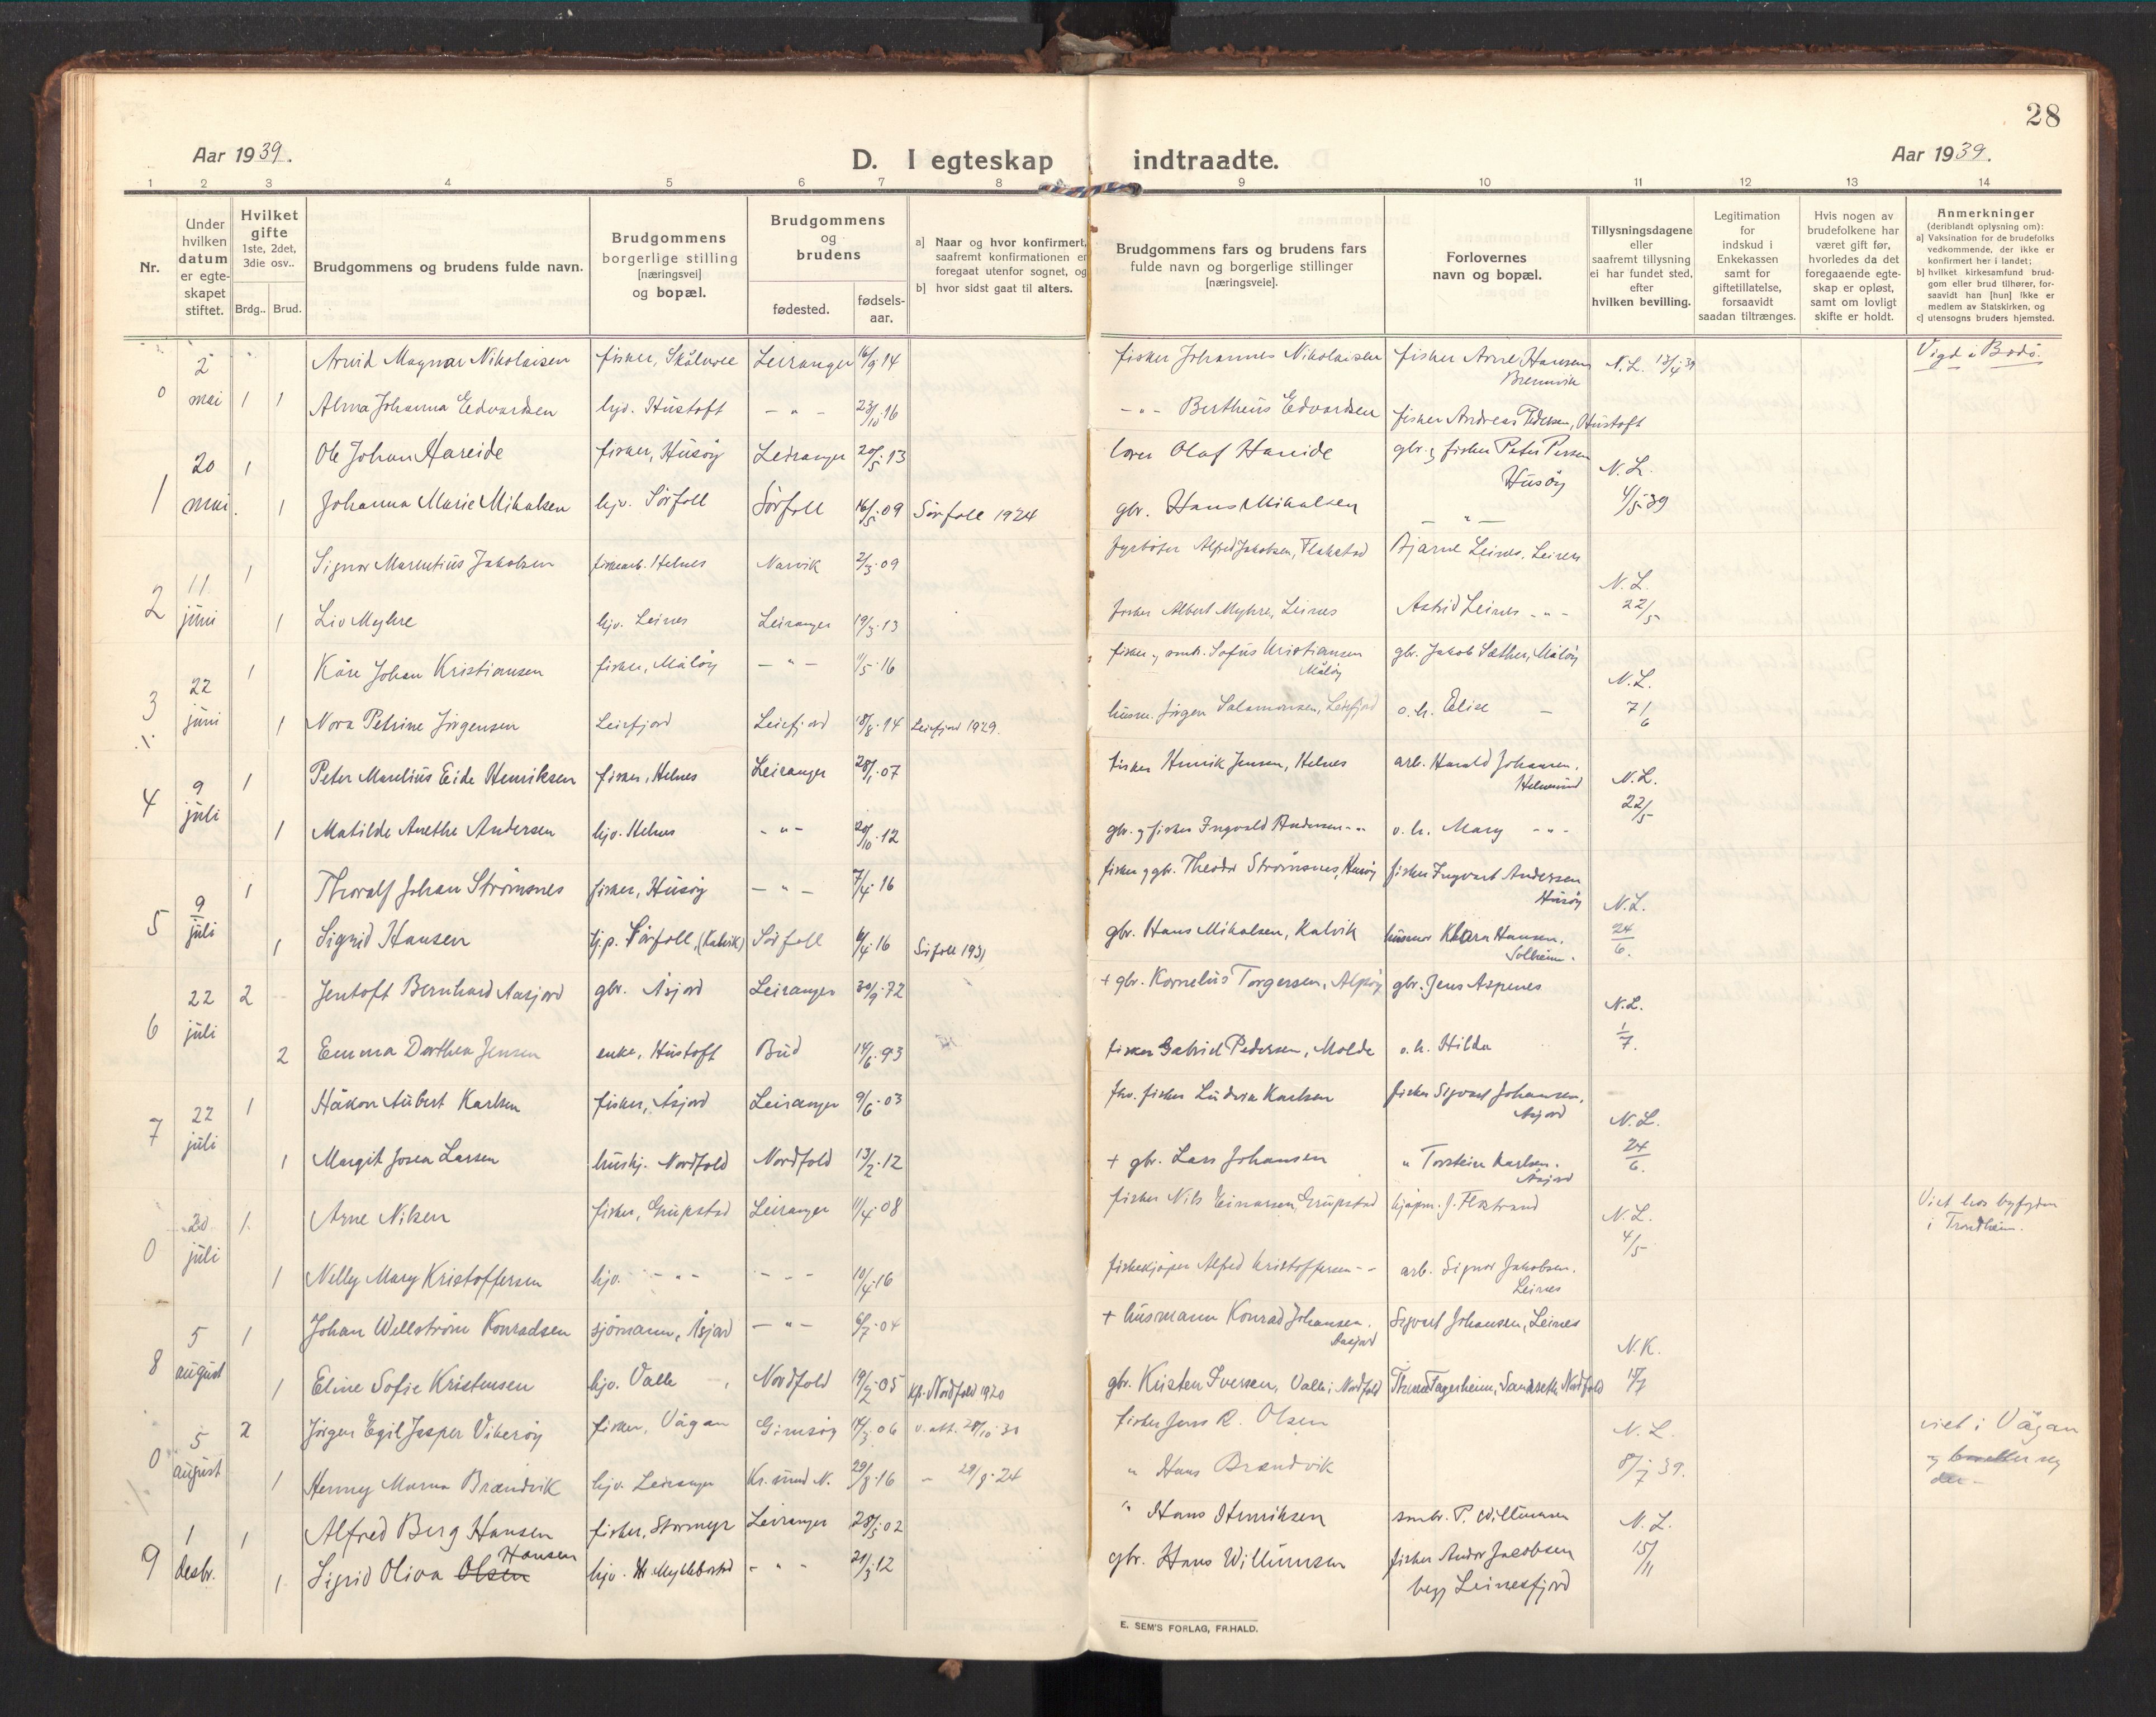 28
Aar 1939.
D. I egteskap indtraadte.
Aar 1939.
1 2 3 4 5 6 7 8 9 10 11 12 13 14
Nr.
Under hvilken datum er egte-skapet stiftet.
Hvilket gifte 1ste, 2det, 3die osv..
Brdg.. Brud.
Brudgommens og brudens fulde navn.
Brudgommens borgerlige stilling [næringsvei] og bopæl.
Brudgommens og brudens
fødested.
fødsels-aar.
a] Naar og hvor konfirmert, saafremt konfirmationen er foregaat utenfor sognet, og
b] hvor sidst gaat til alters.
Brudgommens fars og brudens fars fulde navn og borgerlige stillinger [næringsveie].
Forlovernes navn og bopæl.
Tillysningsdagene eller saafremt tillysning ei har fundet sted, efter hvilken bevilling.
Legitimation for indskud i Enkekassen samt for giftetillatelse, forsaavidt saadan tiltrænges.
Hvis nogen av brudefolkene har været gift før, hvorledes da det foregaaende egte-skap er opløst, samt om lovligt skifte er holdt.
Anmerkninger (deriblandt oplysning om):
a] Vaksination for de brudefolks vedkommende, der ikke er konfirmert her i landet;
b] hvilket kirkesamfund brud-gom eller brud tilhører, for-saavidt han [hun] ikke er medlem av Statskirken, og
c] utensogns bruders hjemsted.
0 2 mai 1 Arvid Magnar Nikolaisen fisker, Skålsvee Leiranger 16/9 14 fisker Johannes Nikolaisen fisker Arne Hansen Brennvik N.L. 13/4 39 Vigd i Bodø.
1 Alma Johanna Edvardsen hjv. Hustoft - " - 23/10 16 - " - Bertheus Edvardsen fisker Andreas Pedersen, Hustoft
1 20 mai. 1 Ole Johan Hareide fisker, Husøy Leiranger 20/5 13 Olaf Hareide gbr. & fisker Peter Husøy N.L. 4/5 39
1 Johanna Marie Mikalsen hjv. Sørfold Sørfold 16/5 09 Sørfold 1924 gbr. Hans Mikalsen - " -
2 11 juni 1 Signar Marentius Jakobsen fiskearb. Helnes Narvik 2/3 09 fyrbøter Alfred Jakobsen, Flakstad Bjarne Leines, Leines N.L. 22/5
1 Liv Myhre hjv. Leines Leiranger 19/3 13 fisker Albert Myhre, Leines Astrid Leines - " -
3 22 juni 1 Kåre Johan Kristiansen fisker, Måløy - " - 11/5 16 fisker & småbr. Sofus Kristiansen Måløy gbr. Jakob Sæther, Måløy N.L. 7/6
1 Nora Petrine Jørgensen Leirfjord Leirfjord 18/8 14 Leirfjord 1929. husm. Jørgen Salamonsen, Leirfjord o.h. Elise -
4 9 juli 1 Peter Marelius Eide Henriksen fisker, Helnes Leiranger 28/1 07 fisker Henrik Jensen, Helnes arb. Harald Johansen, Helnesund N.L. 22/5
1 Matilde Anethe Andersen hjv. Helnes - " - 20/10 12 gbr. & fisker Ingvald Andersen - " - o.h. Mary - " -
5 9 juli 1 Thoralf Johan Strømsnes fisker, Husøy - " - 7/4 16 fisker & gbr. Theodor Strømsnes, Husøy fisker Ingvart Andersen Husøy N.L. 24/6.
1 Sigrid Hansen tj.p. Sørfold, (Kalvik) Sørfold 6/4 16 Sørfold 1931 gbr. Hans Mikalsen, Kalvik husmor Klara Hansen, Solheim.
6 22 juli 2 Jentoft Bernhard Aasjord gbr. Åsjord Leiranger 30/9 72 + gbr. Kornelius Torgersen, Alpøy gbr. Jens Aspenes N.L. 1/7.
2 Emma Dorthea Jensen enke, Hustoft Bud 14/6 93 fisker Gabriel Pedersen, Molde o.h. Hilda
7 22 juli 1 Håkon Aubert Karlsen fisker, Åsjord Leiranger 9/6 03 fhv. fisker Ludvik Karlsen fisker Sigvart Johansen, Åsjord N.L. 24/6.
1 Margit Josea Larsen hushj. Nordfold Nordfold 13/2 12 + gbr. Lars Johansen " Torstein Karlsen. Åsjord
0 20 juli 1. Arne Nilsen fisker, Grupstad Leiranger 11/4 08 fisker Nils Einarsen, Grupstad kjøpm. J. Flostrand N.L. 4/5 Viet hos byfogden i Trondheim.
1 Nelly Mary Kristoffersen hjv. - " - - " - 10/4 16 fiskekjøper Alfred Kristoffersen - " - arb. Signar Jakobsen. Leines
8 5 august 1 Johan Wellstrøm Konradsen sjømann, Åsjord - " - 6/7 04 + husmann Konrad Johansen. Aasjord Sigvart Johansen, Leines N.K. 15/7
1 Eline Sofie Kristensen hjv. Valle Nordfold 19/2 05 kf. Nordfold 1920 gbr. Kristen Iversen, Valle i Nordfold Fagerheim, Sandseth, Nordfold
0 5 august 2 Jørgen Egil Jesper Vikerøy fisker, Vågan Gimsøy 14/3 06 v. att. 28/10 31 fisker Jens R. Olsen N.L. 8/7 39. viet i Vågan
1 Henny Marna Brandvik hjv. Leiranger Kr.sund N. 29/8 16 - 29/8 24 " Hans Brandvik og bosetter seg der -
9 1 desbr. 1 Alfred Berg Hansen fisker, Stormyr Leiranger 28/5 02 " Hans Henriksen småbr. P. Willumsen N.L. 15/11
1 Sigrid Oliva Olsen Hansen hjv. Myklebostad - " - 21/3 12 gbr. Hans Willumsen fisker Andor Jacobsen begg Leinesfjord
E. SEM'S FORLAG, FR.HALD.